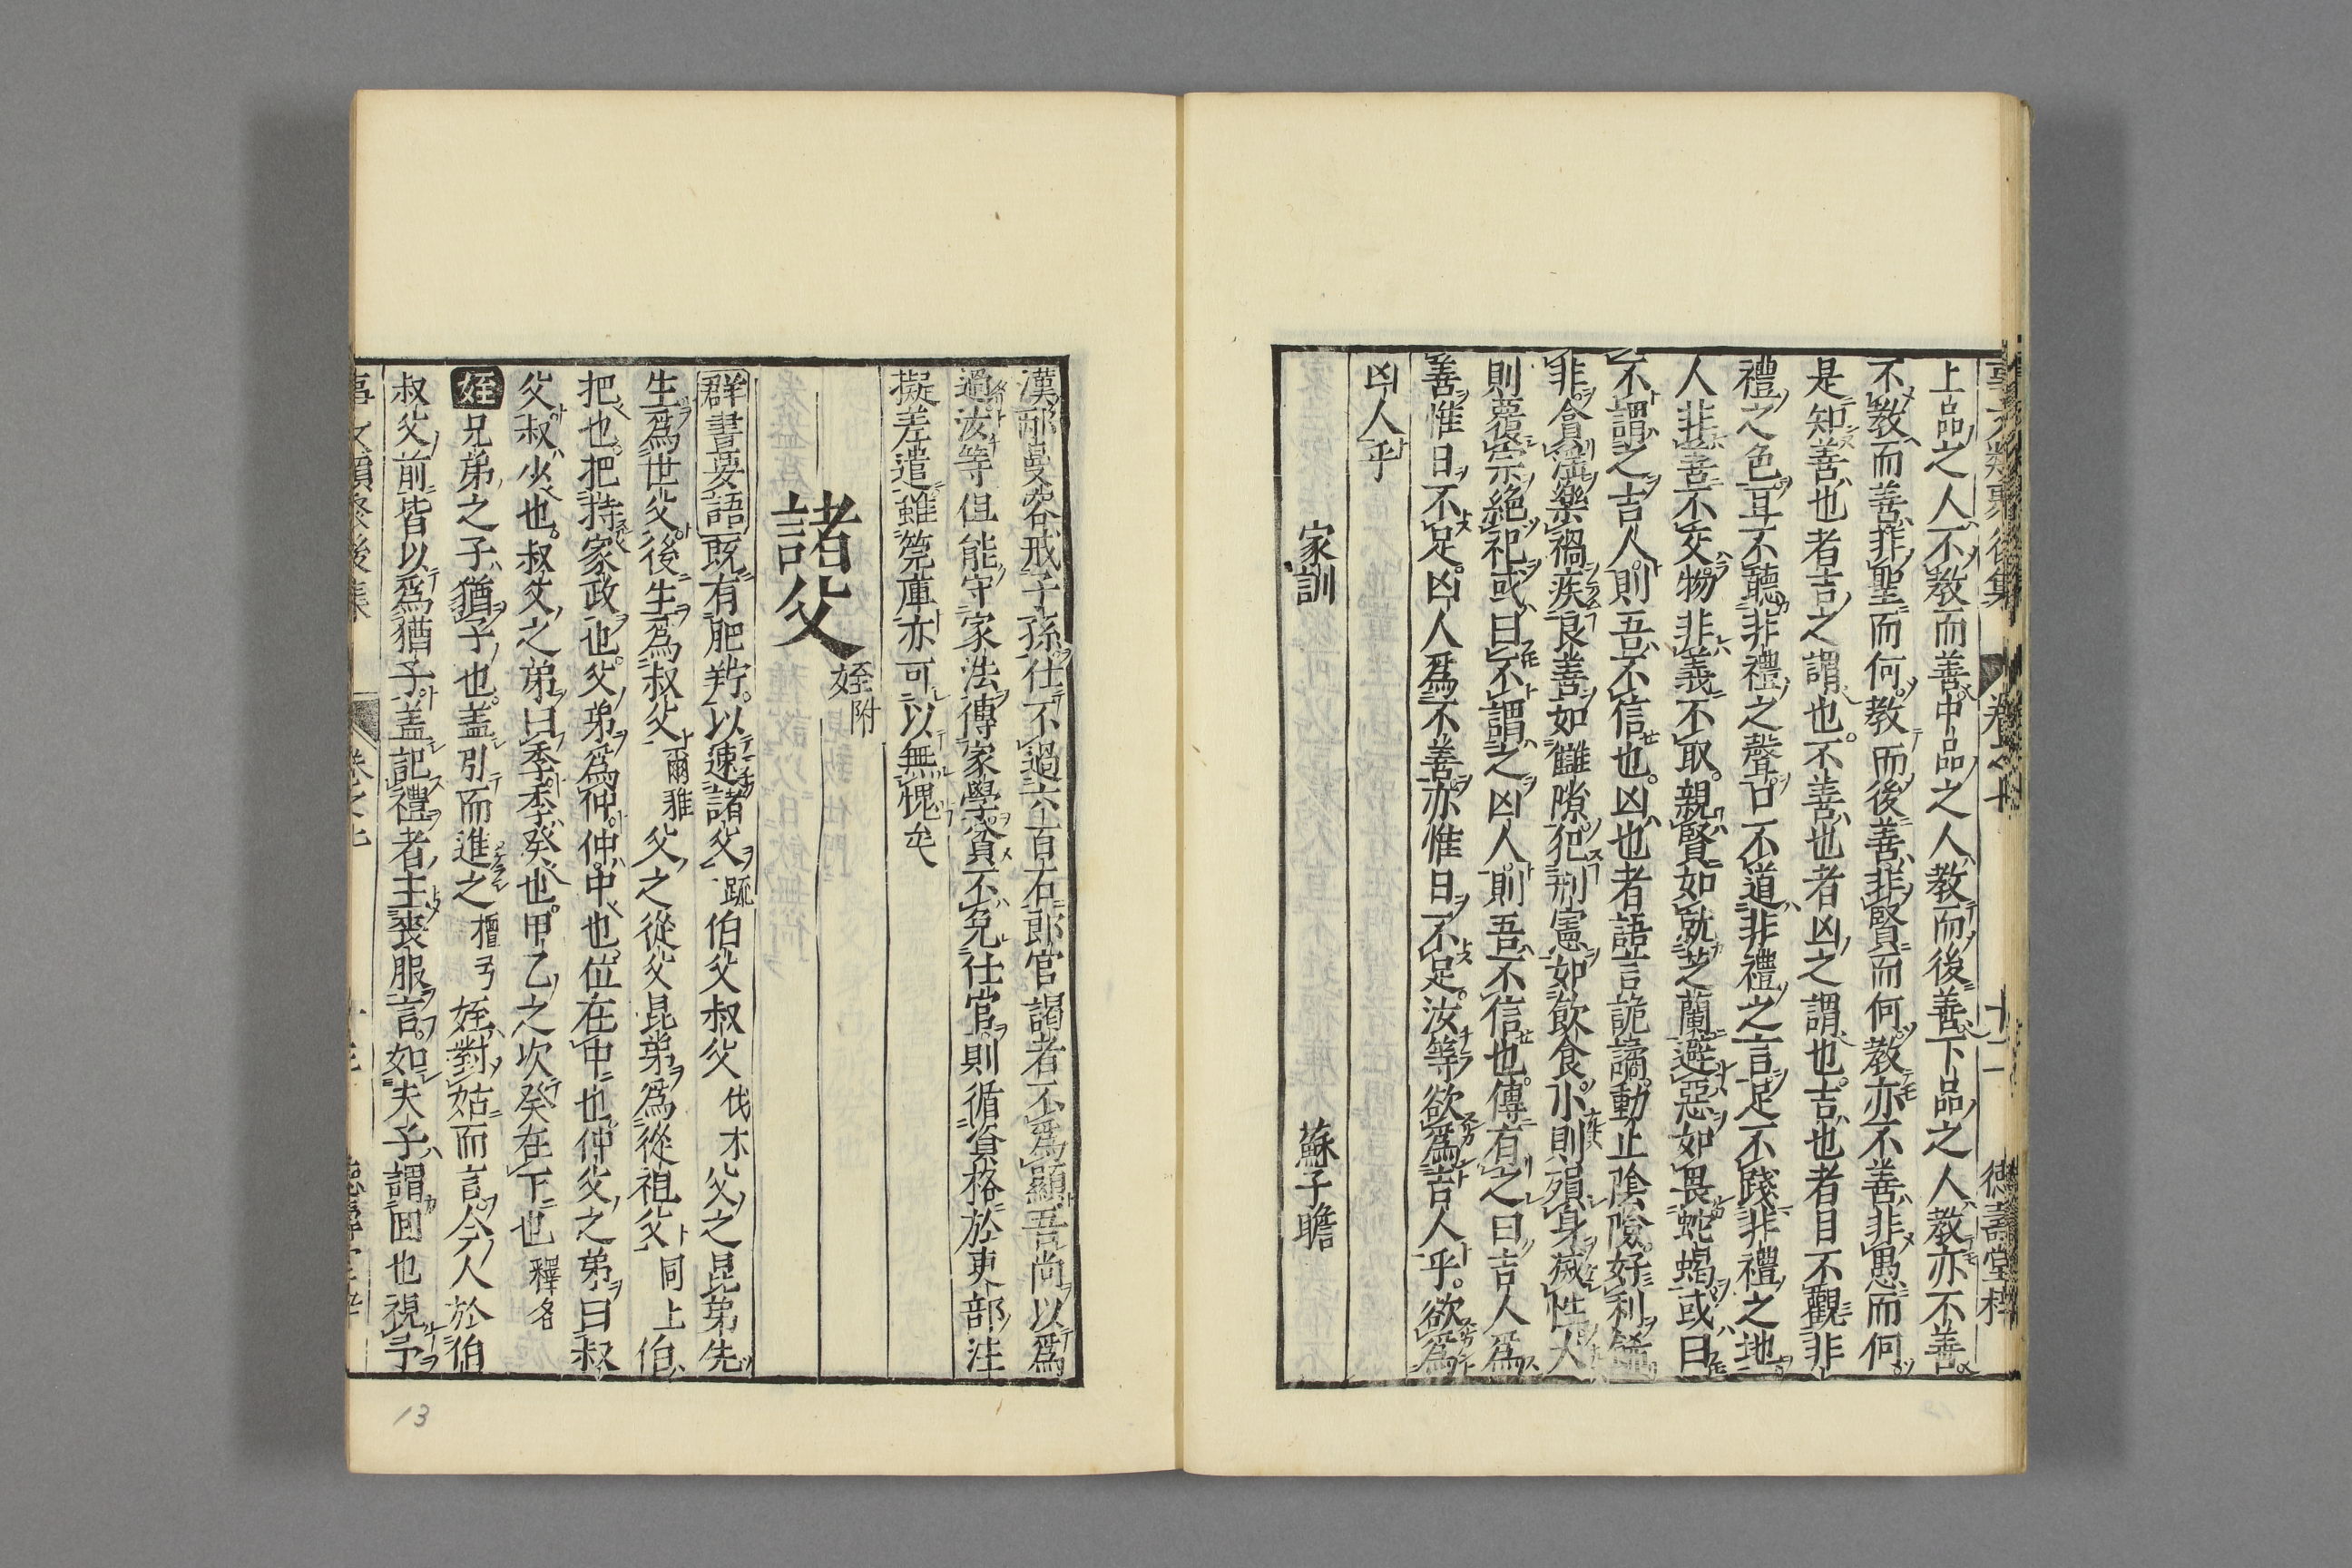 上品之人不教而善中品之人教而後善下品之人教亦不善
不教而善非聖而何教而後善非賢而何教亦不善非愚而何
是知善也者吉之謂也不善也者凶之謂也吉也者目不觀非
禮之色耳不聽非禮之聲口不道非禮之言足不踐非禮之地
人非善不交物非義不取親賢如就芝蘭避惡如畏蛇蝎或曰
不謂之吉人則吾不信也凶也者語言詭譎動止陰險好利飾
非貪淫樂禍疾良善如讎隙犯刑憲如飲食小則殞身滅性大
則覆宗絕祀或曰不謂之凶人則吾不信也傳有之曰吉人爲
善惟日不足凶人爲不善亦惟日不足汝等欲爲吉人乎欲爲
凶人乎
家訓 蘇子瞻
漢邴曼容戒子孫仕不過六百石郎官謁者不爲顯吾尚以爲
過汝等但能守家法傳家學貧不免仕宦則循資格於吏部注
擬差遣雖筦庫亦可以無愧矣
諸父 姪附
群書要語 既有肥羜以速諸父 疏 伯父叔父 伐木 父之昆弟先
生爲世父後生爲叔父 爾雅 父之從父昆弟爲從祖父 同上 伯
把也把持家政也父弟爲仲仲中也位在中也仲父之弟曰叔
父叔少也叔父之弟曰季季癸也甲乙之次癸在下也 釋名
姪 兄弟之子猶子也盖引而進之 檀弓 姪對姑而言今人於伯
叔父前皆以爲猶子盖記禮者主喪服言如夫子謂回也視予
卷之七
13